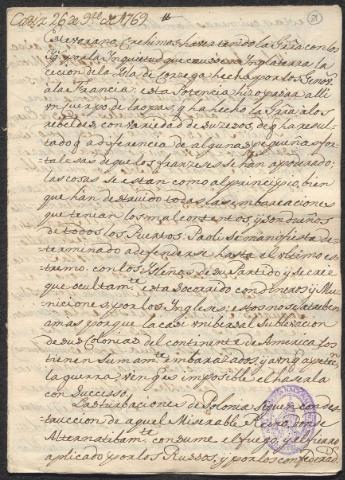 Cadiz 26 de 9bre de 1769
Este verano, Crehimos haver tenido la Grãa con los
Ings por la Inquietud que causó en Inglaterra la
cecion de la Isla de Corzega hecha por los Genovs
a la Francia; esta Potencia hizo pasar alli
un cuerpo de tropas q ha hecho la Grãa a los
rebeldes con variedad de suzesos, de q ha resul-
tado q a diferencia de algunas pequeñas for-
talesas de que los franzeses se han apoderado,
las cosas se estan como al principio, bien
que han destruido todas las embarcaciones
que tenian los mal contentos, y son dueños
de todos los Puertos. Paoli se manifiesta de-
terminado a defenderse hasta el ultimo es-
tremo con los Isleños de su Partido y se cree
que ocultamte está socorrido con dineros y Mu-
niciones, por los Ingleses; estos no se atreben
a mas porque la casi umbersal sublevacion
de sus Colonias del continente de America los
tienen sumamte embarazados, y aunq
la guerra, ven q es imposible el hazerla
con successo.
Las turbaciones de Polonia siguen con des-
truccion de aquel Miserable Reino, donde
Alternatibamte consume el fuego, y el fierro
aplicado por los Russos, y por los confederad